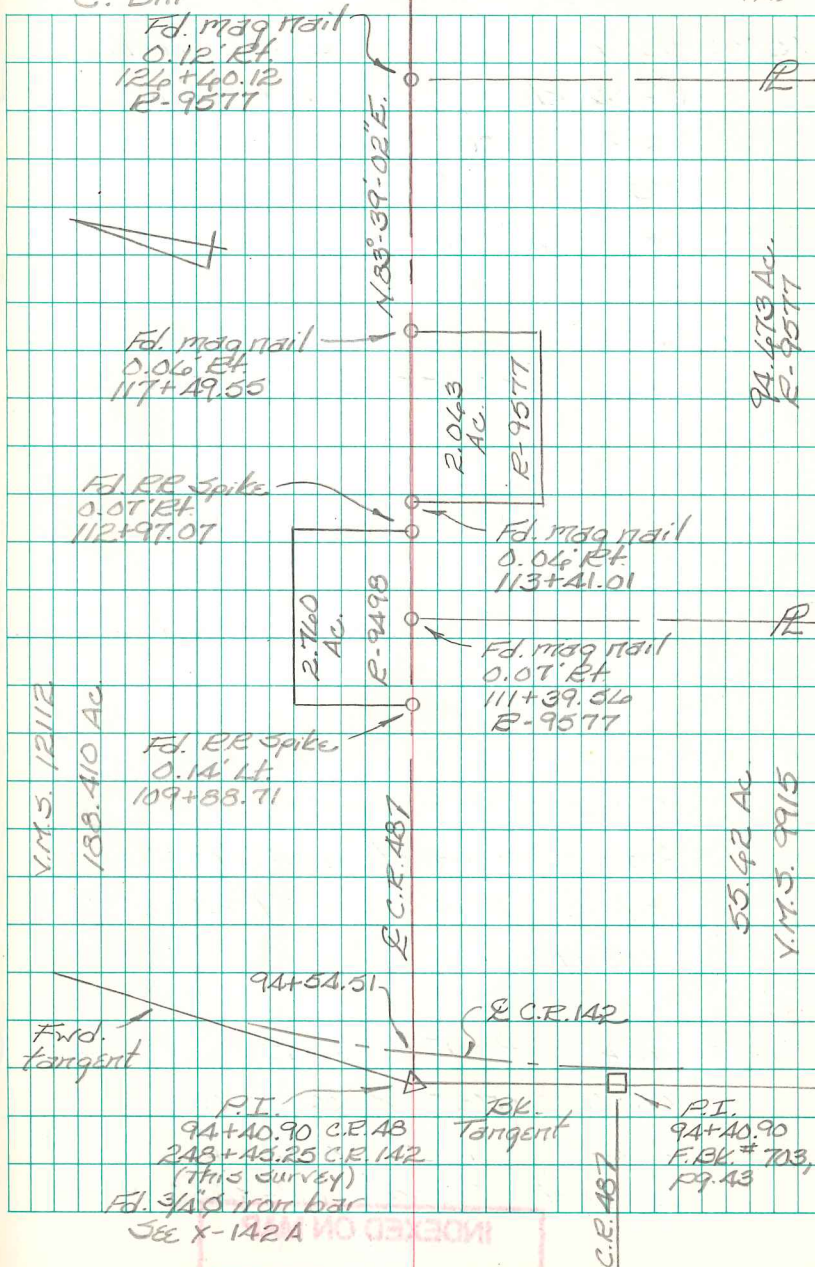 Fd. mag nail
0.12' Rt.
126+60.12
R-9577
PL
N.83°-39'-02"E.
Fd. mag nail
0.06' Rt.
117+49.55
2.063
Ac.
R-9577
94.673 Ac.
R-9577
Fd. RR Spike
0.07' Rt.
112+97.07
Fd. mag nail
0.06' Rt.
113+41.01
2.760
Ac.
R-9498
PL
Fd. mag nail
0.07' Rt.
111+39.56
R-9577
Fd. RR Spike
0.14' Lt.
109+88.71
V.M.S. 12112
188.410 Ac.
55.62 Ac.
V.M.S. 9915
℄ C.R. 487
94+54.51
℄ C.R. 142
Fwd.
tangent
P.I.
94+40.90 C.R. 48
248+46.25 C.R. 142
(this survey)
Fd. 3/4"ø iron bar
See X-142A
Bk.
Tangent
P.I.
94+40.90
F.BK. # 703,
pg. 43
C.R. 487
INDEXED ON MAP